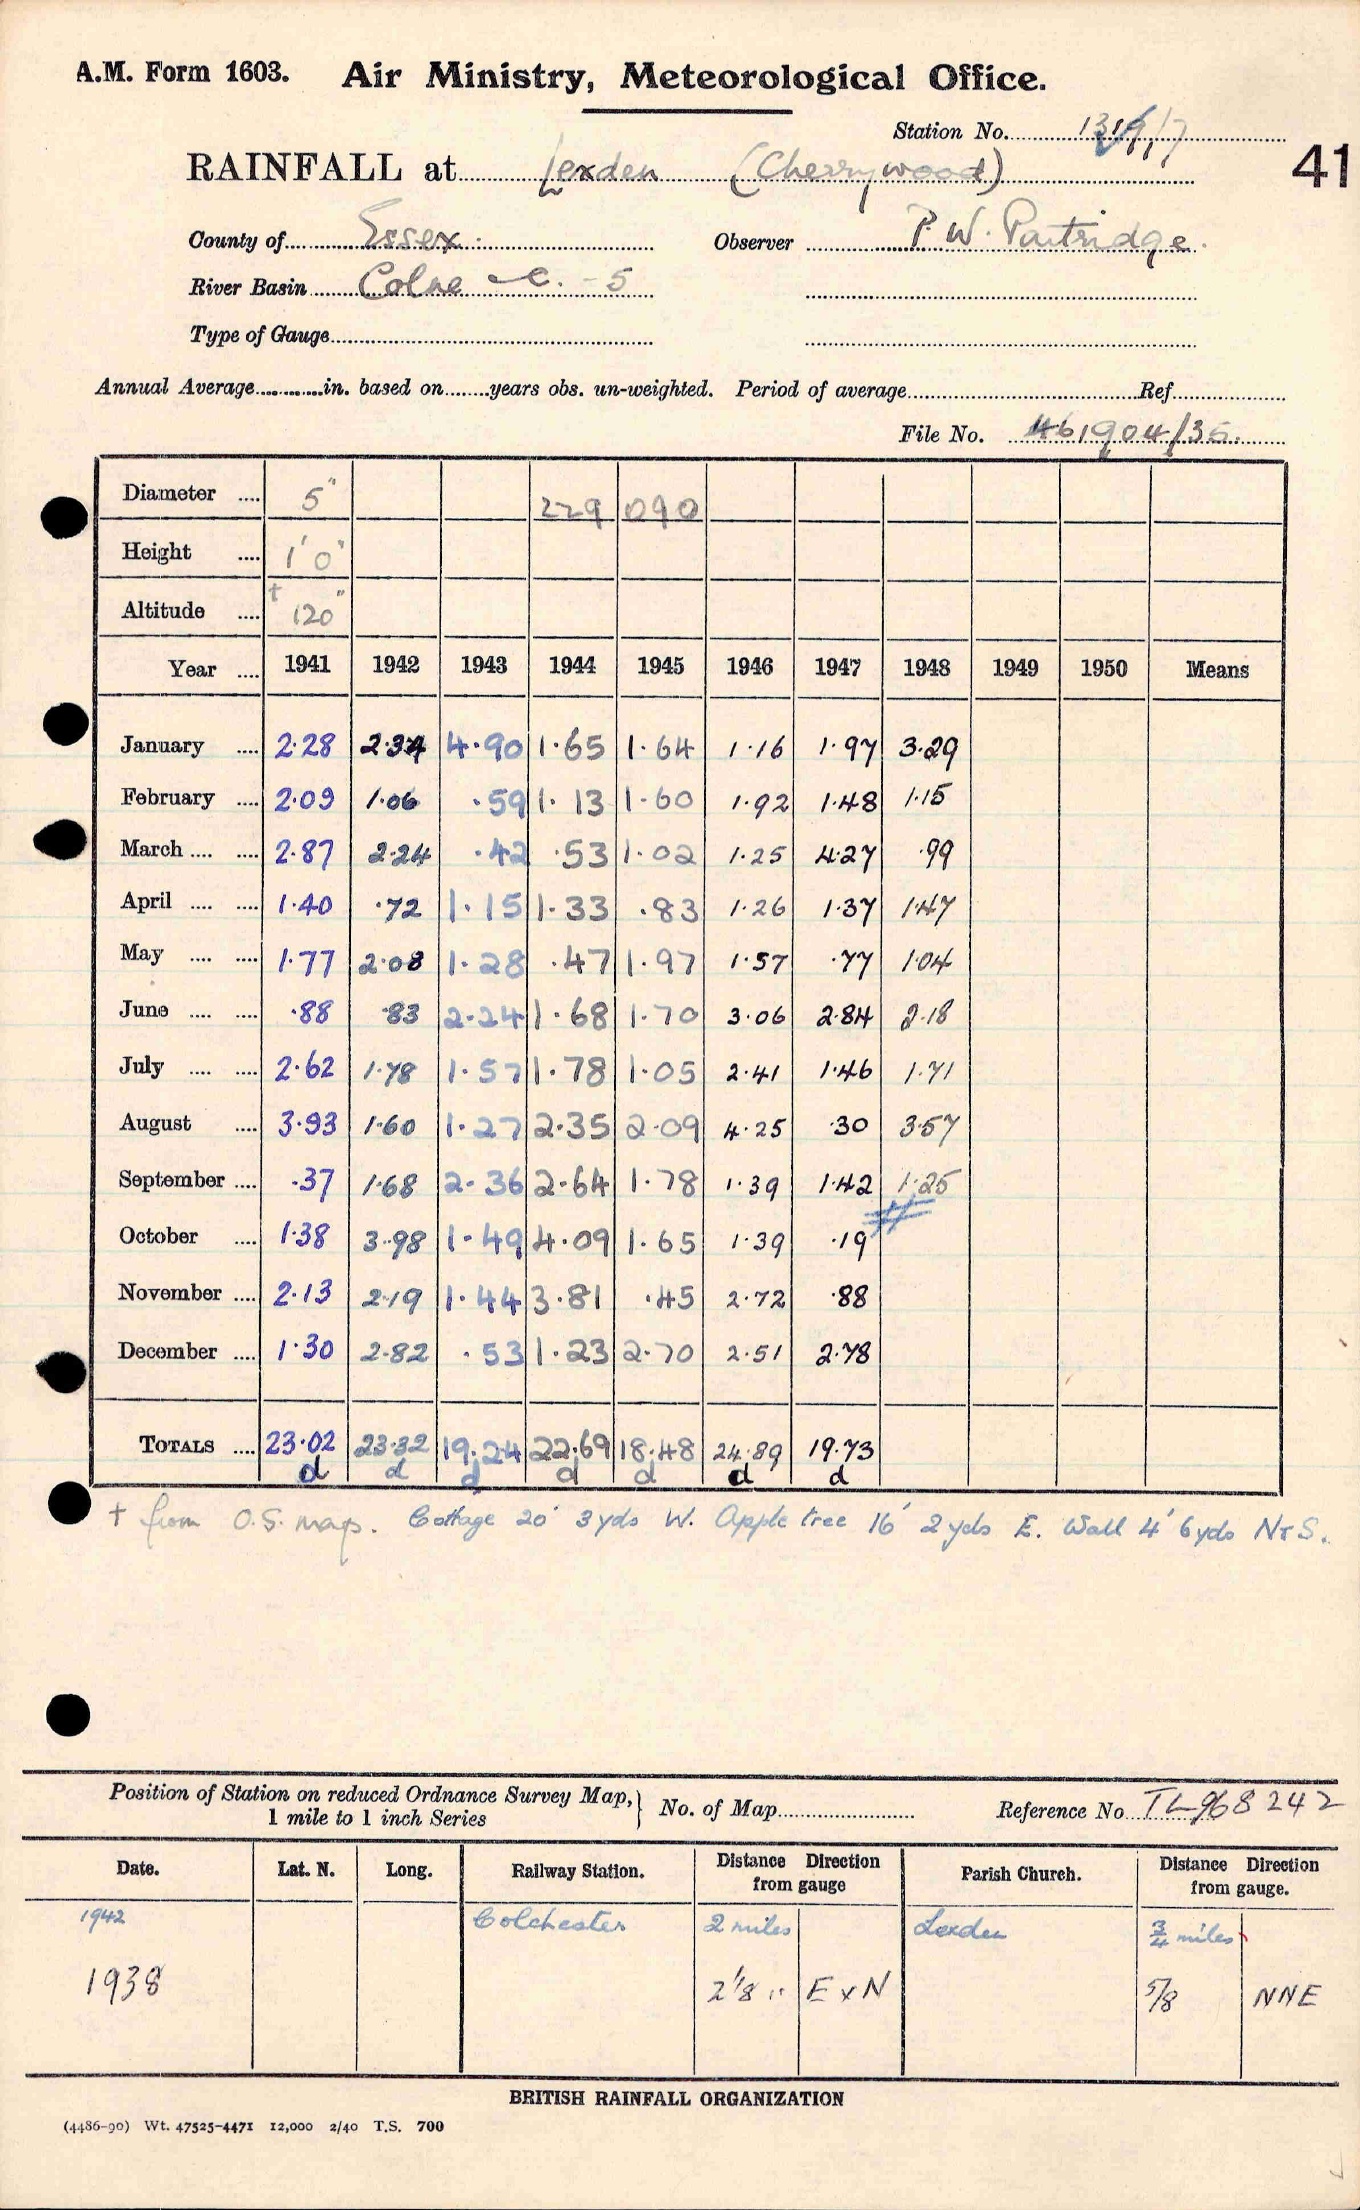 A.M. Form 1603. Air Ministry, Meteorological Office.
Station No.
RAINFALL at Lexden (Cherrywood)
41
County of Essex. Observer P. W. Partridge.
River Basin Colne &c. - 5
Type of Gauge
Annual Average in. based on years obs. un-weighted. Period of average Ref
File No. 461904/35.
Diameter 5" 229 090
Height 1' 0"
Altitude † 120"
Year 1941 1942 1943 1944 1945 1946 1947 1948 1949 1950 Means
January 2.28 2.34 4.90 1.65 1.64 1.16 1.97 3.29
February 2.09 1.06 .59 1.13 1.60 1.92 1.48 1.15
March 2.87 2.24 .42 .53 1.02 1.25 4.27 .99
April 1.40 .72 1.15 1.33 .83 1.26 1.37 1.47
May 1.77 2.08 1.28 .47 1.97 1.57 .77 1.04
June .88 .83 2.24 1.68 1.70 3.06 2.84 2.18
July 2.62 1.78 1.57 1.78 1.05 2.41 1.46 1.71
August 3.93 1.60 1.27 2.35 2.09 4.25 .30 3.57
September .37 1.68 2.36 2.64 1.78 1.39 1.42 1.25
October 1.38 3.98 1.49 4.09 1.65 1.39 .19
November 2.13 2.19 1.44 3.81 .45 2.72 .88
December 1.30 2.82 .53 1.23 2.70 2.51 2.78
TOTALS 23.02 23.32 19.24 22.69 18.48 24.89 19.73
d d d d d d d
† from O.S. map. Cottage 20' 3 yds W. Apple tree 16' 2 yds E. Wall 4' 6 yds N & S.
Position of Station on reduced Ordnance Survey Map, 1 mile to 1 inch Series } No. of Map Reference No TL 968 242
Date. Lat. N. Long. Railway Station. Distance Direction from gauge Parish Church. Distance Direction from gauge.
1942 Colchester 2 miles Lexden 3/4 miles
1938 2 1/8 " E x N 5/8 NNE
BRITISH RAINFALL ORGANIZATION
(4486-90) Wt. 47525-4471 12,000 2/40 T.S. 700